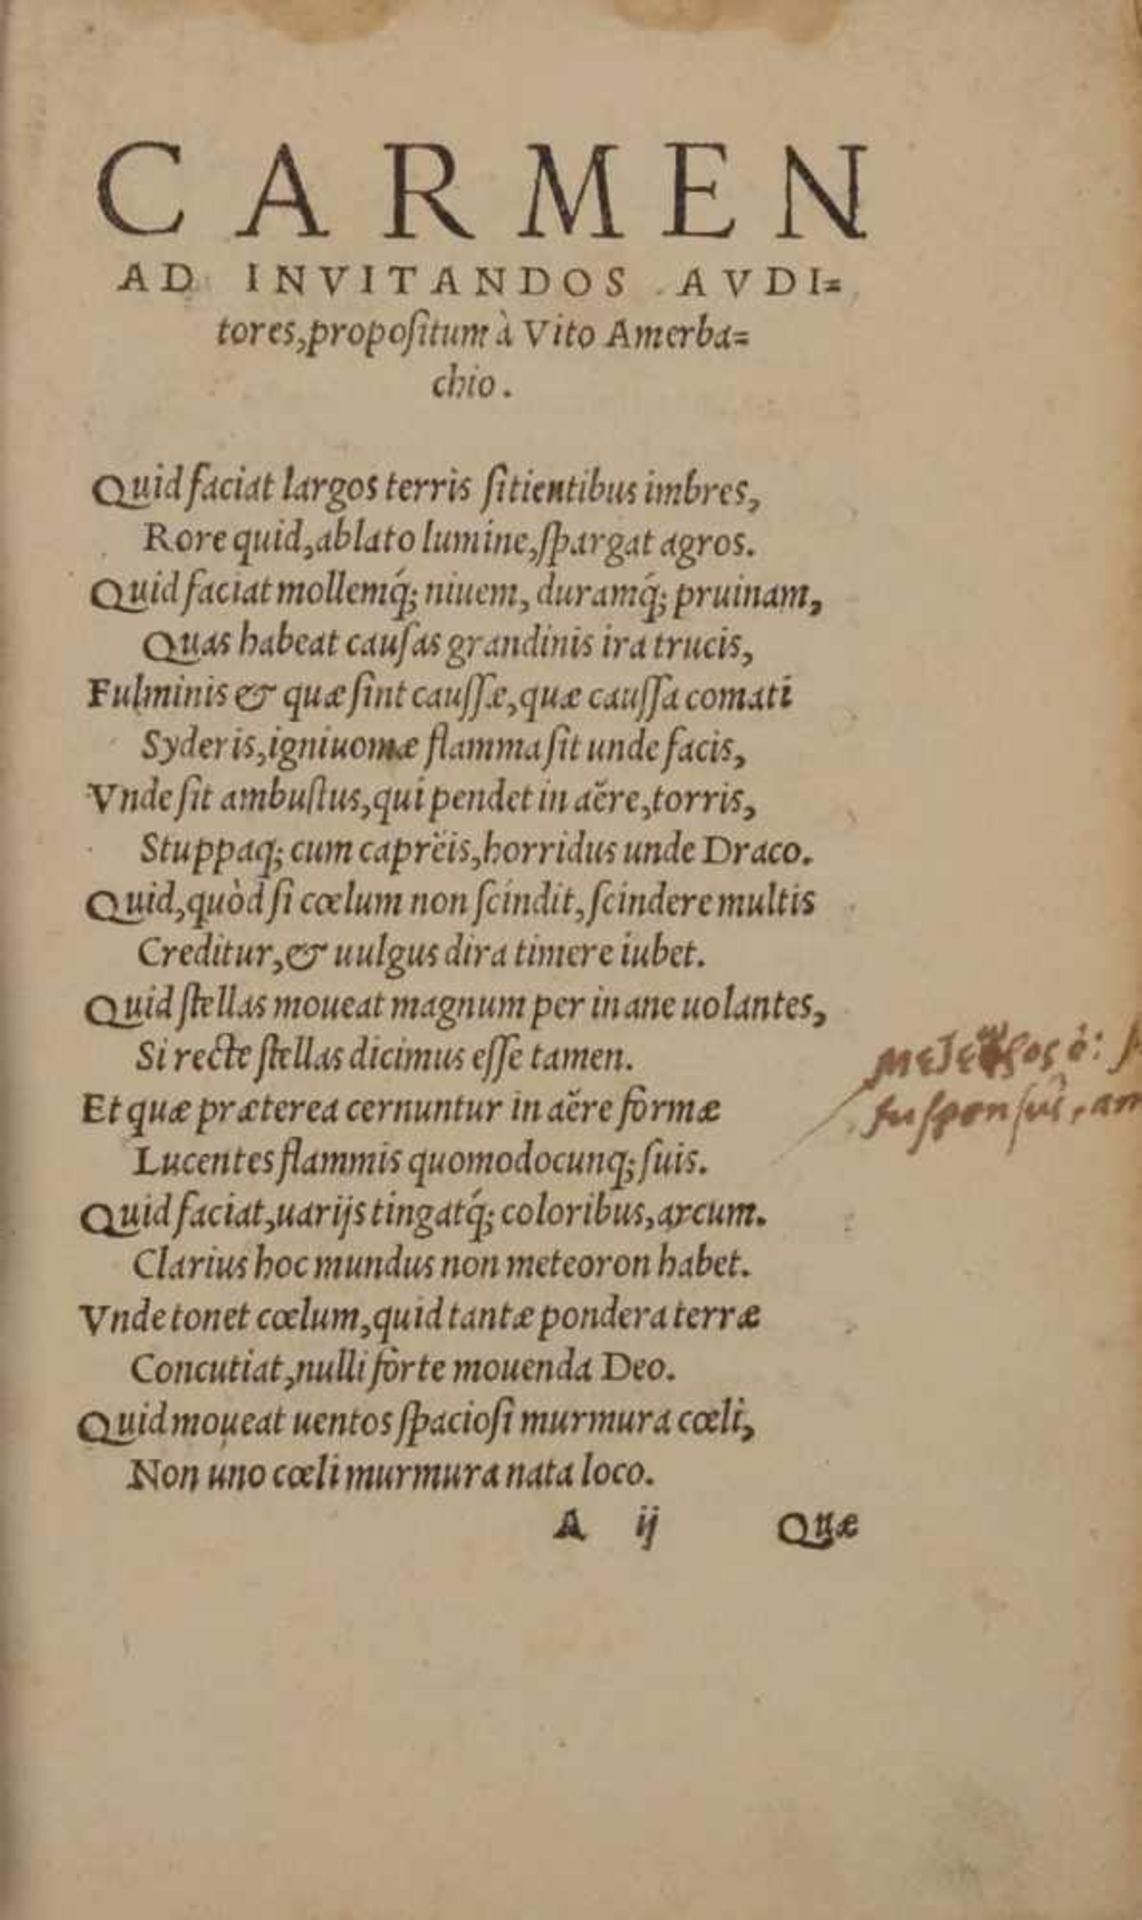 CARMEN
AD INVITANDOS AVDI=
tores, propoſitum à Vito Amerba=
chio.
Quid faciat largos terris ſitientibus imbres,
Rore quid, ablato lumine, ſpargat agros.
Quid faciat mollemq́; niuem, duramq́; pruinam,
Quas habeat cauſas grandinis ira trucis,
Fulminis & quæ ſint cauſſæ, quæ cauſſa comati
Syderis, igniuomæ flamma ſit unde facis,
Vnde ſit ambuſtus, qui pendet in aëre, torris,
Stuppaq; cum caprëis, horridus unde Draco.
Quid, quòd ſi cœlum non ſcindit, ſcindere multis
Creditur, & uulgus dira timere iubet.
Quid ſtellas moueat magnum per inane uolantes,
Si recte ſtellas dicimus eſſe tamen.
Et quæ præterea cernuntur in aëre formæ
Lucentes flammis quomodocunq; ſuis.
Quid faciat, uarijs tingatq́; coloribus, arcum.
Clarius hoc mundus non meteoron habet.
Vnde tonet cœlum, quid tantæ pondera terræ
Concutiat, nulli forte mouenda Deo.
Quid moueat uentos ſpacioſi murmura cœli,
Non uno cœli murmura nata loco.
A ij Quæ
μετέωρος ὁ:
ſuſpenſus,